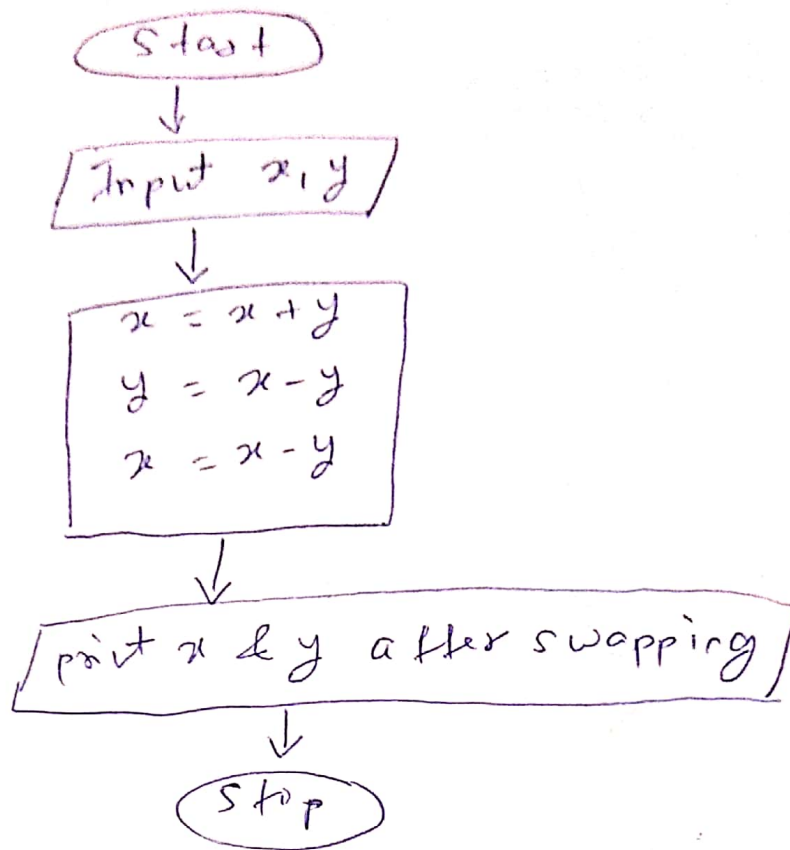 Start
Input x, y
x = x + y
y = x - y
x = x - y
print x & y after swapping
Stop